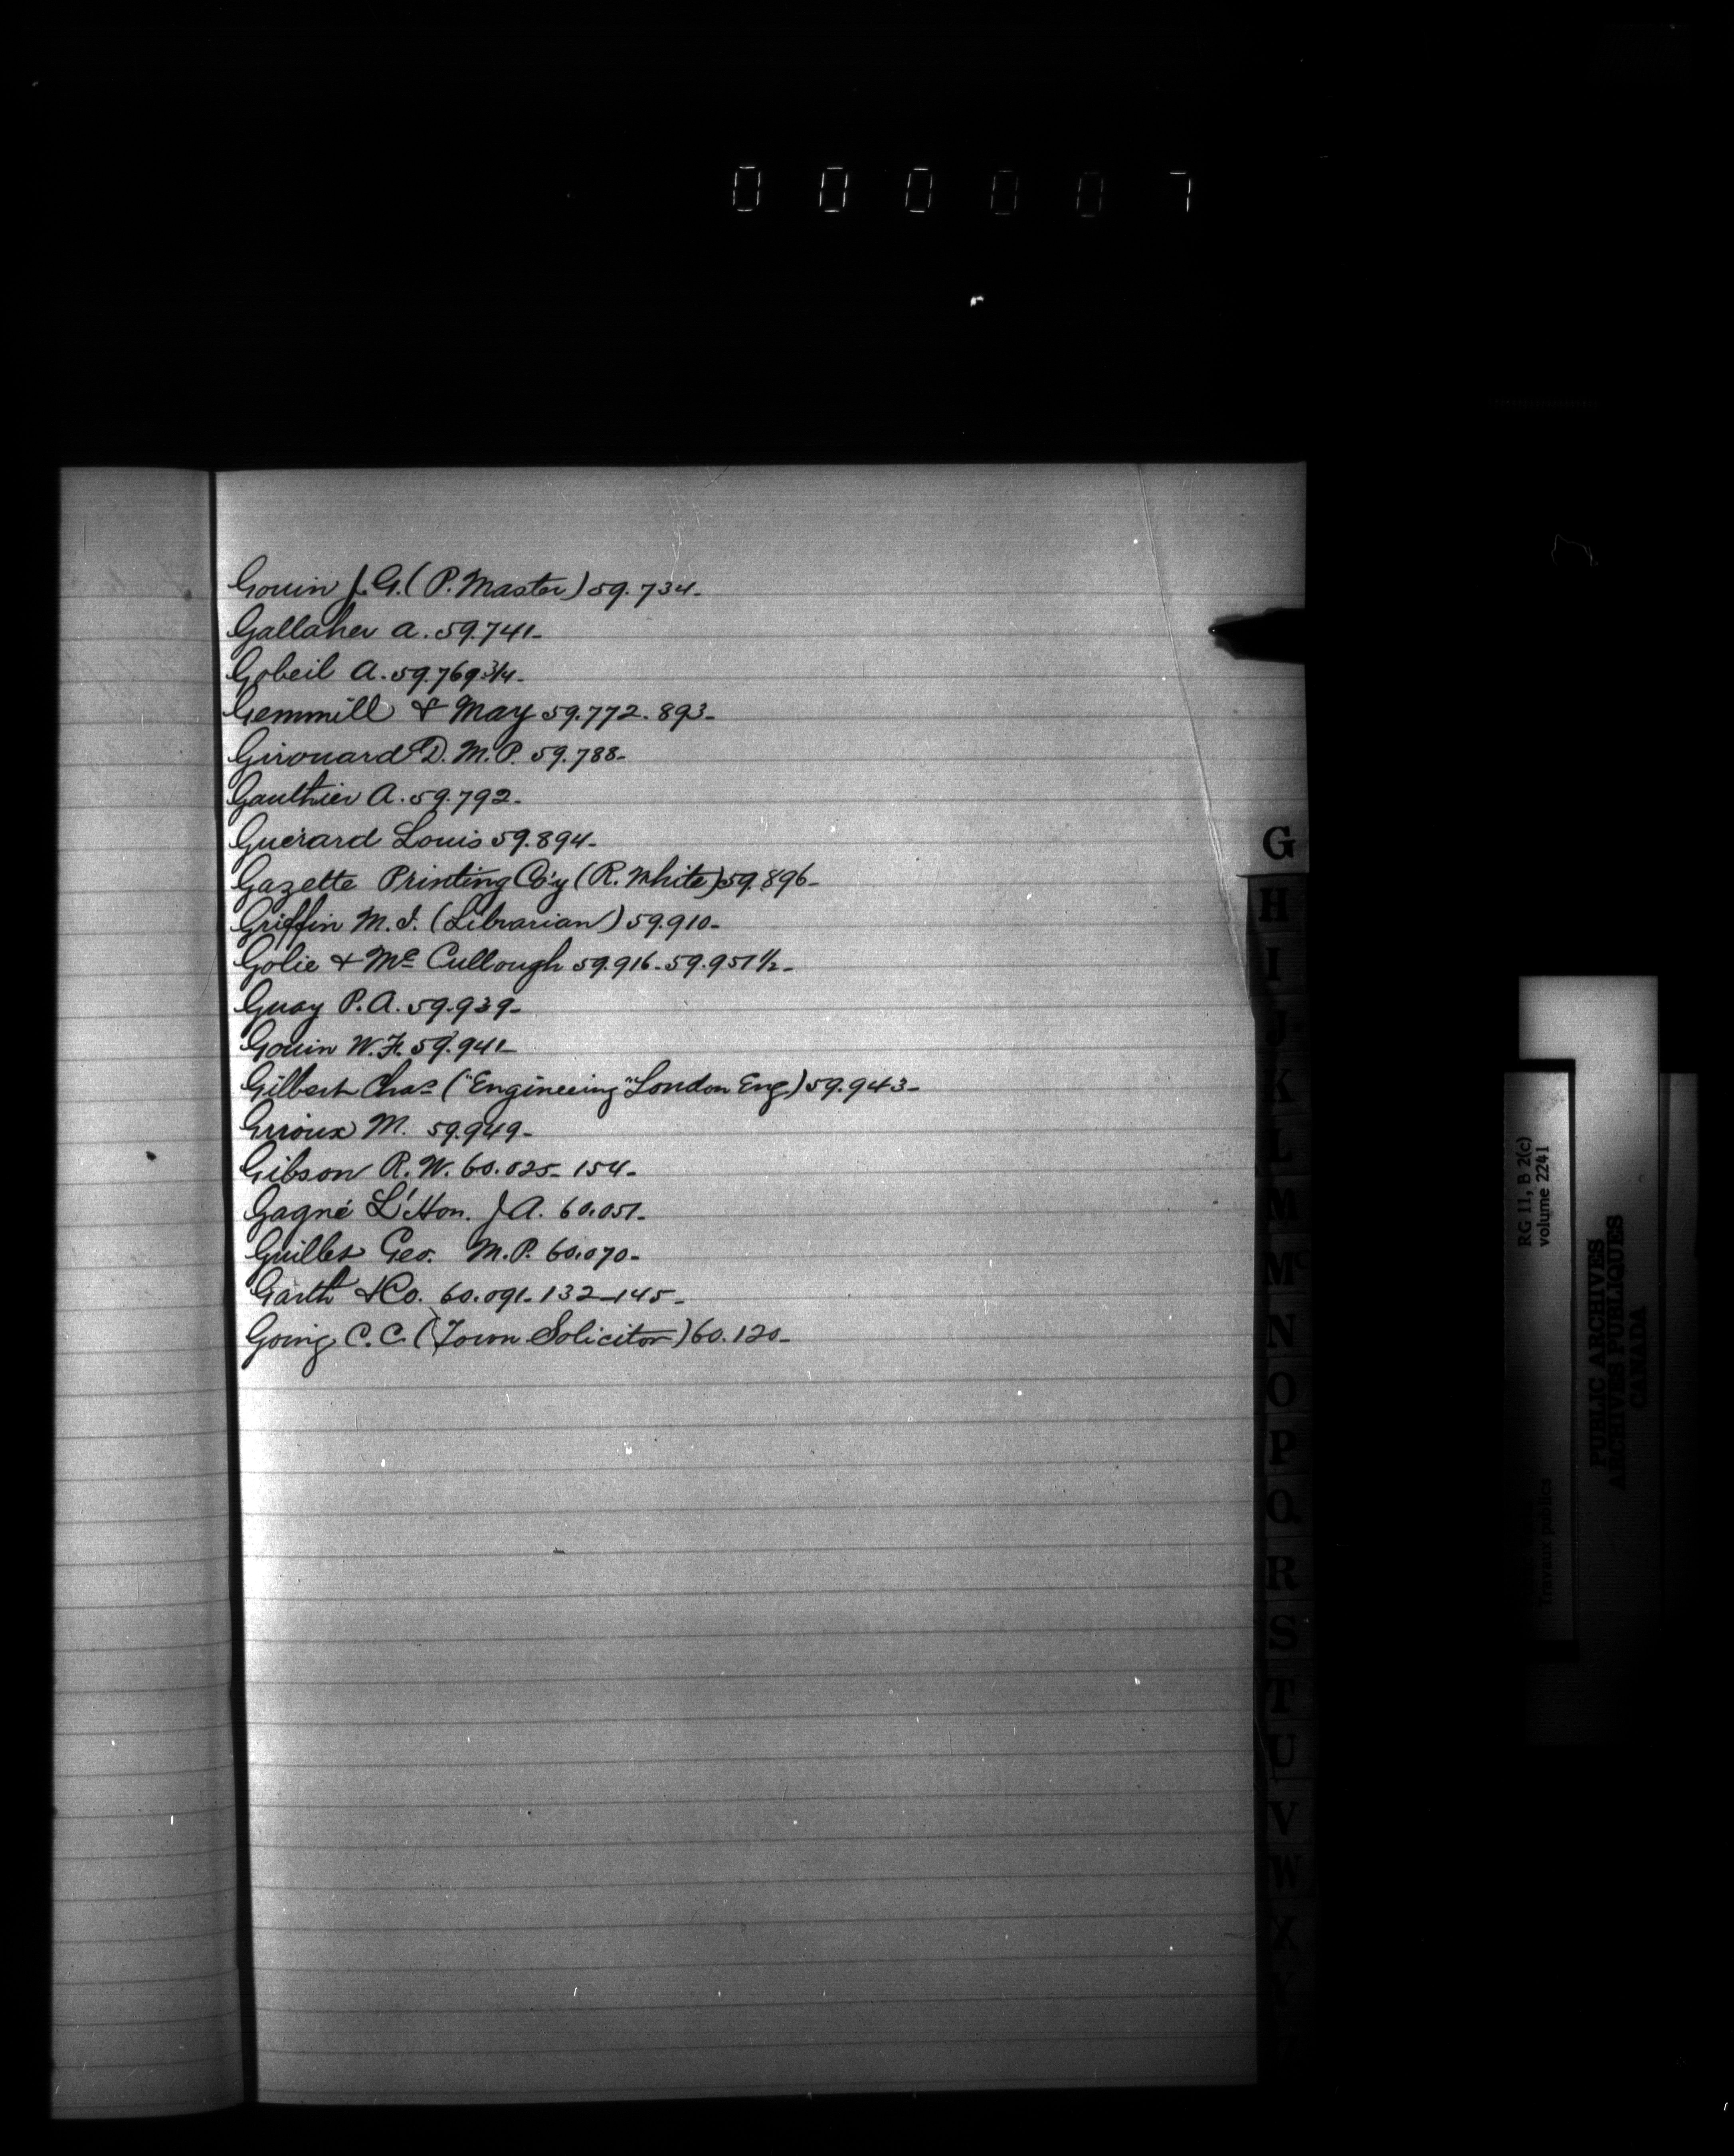 000007
Gouin J. G. (P. Master) 59.734-
Gallaher A. 59.741-
Gobeil A. 59.769 3/4-
Gemmill & May 59.772. 893-
Girouard D. M.P. 59.788-
Gauthier A. 59.792-
Guerard Louis 59.894-
Gazette Printing Co'y (R. White) 59.896-
Griffin M. J. (Librarian) 59.910-
Golie & Mc Cullough 59.916-59.951½-
Guay P. A. 59.939-
Gouin W. F. 59.941-
Gilbert Chas ("Engineering" London Eng) 59.943-
M. 59.949-
Gibson R. W. 60.025- 154-
Gagné L'Hon. J A. 60.051-
Guillet Geo. M.P. 60.070-
Garth & Co. 60.091-132-145-
Going C. C. (Town Solicitor) 60.120-
G
H
I
J
K
L
M
Mc
N
O
P
Q
R
S
T
U
V
W
X
Y
RG 11, B 2(c)
volume 2241
Travaux publics
PUBLIC ARCHIVES
ARCHIVES PUBLIQUES
CANADA